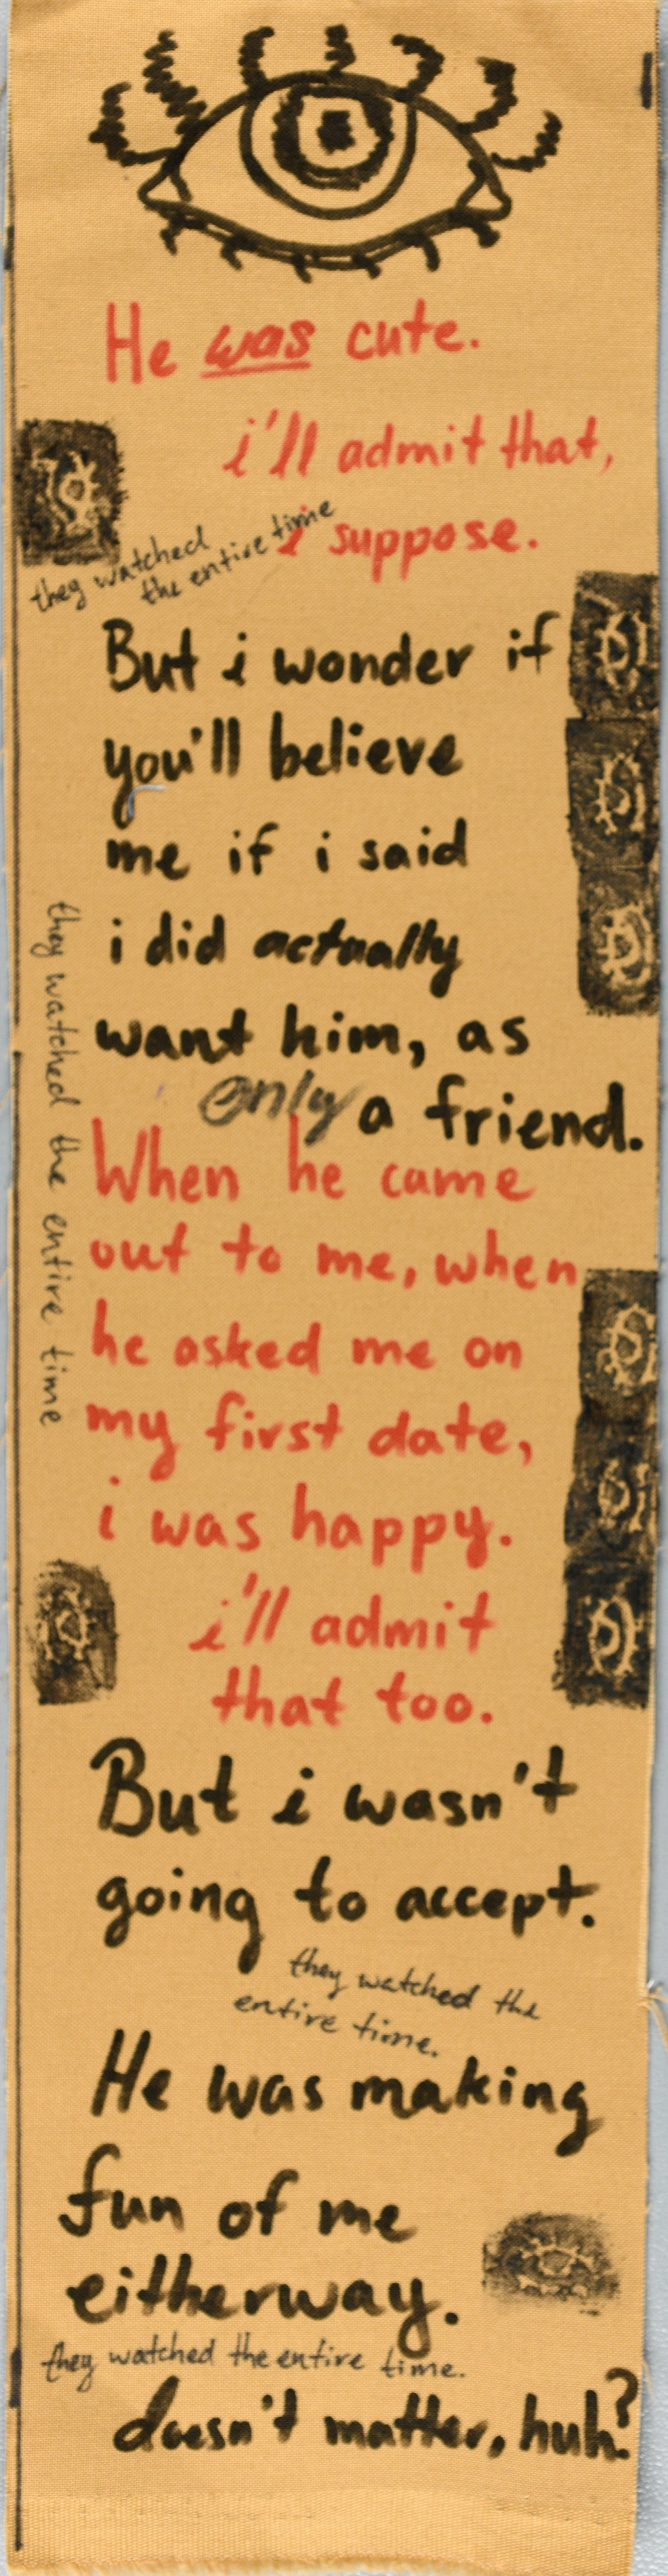 He was cute.
i'll admit that,
i suppose.
they watched
the entire time
But i wonder if
you'll believe
me if i said
i did actually
want him, as
only a friend.
they watched the entire time
When he came
out to me, when
he asked me on
my first date,
i was happy.
i'll admit
that too.
But i wasn't
going to accept.
they watched the
entire time.
He was making
fun of me
eitherway.
they watched the entire time.
doesn't matter, huh?